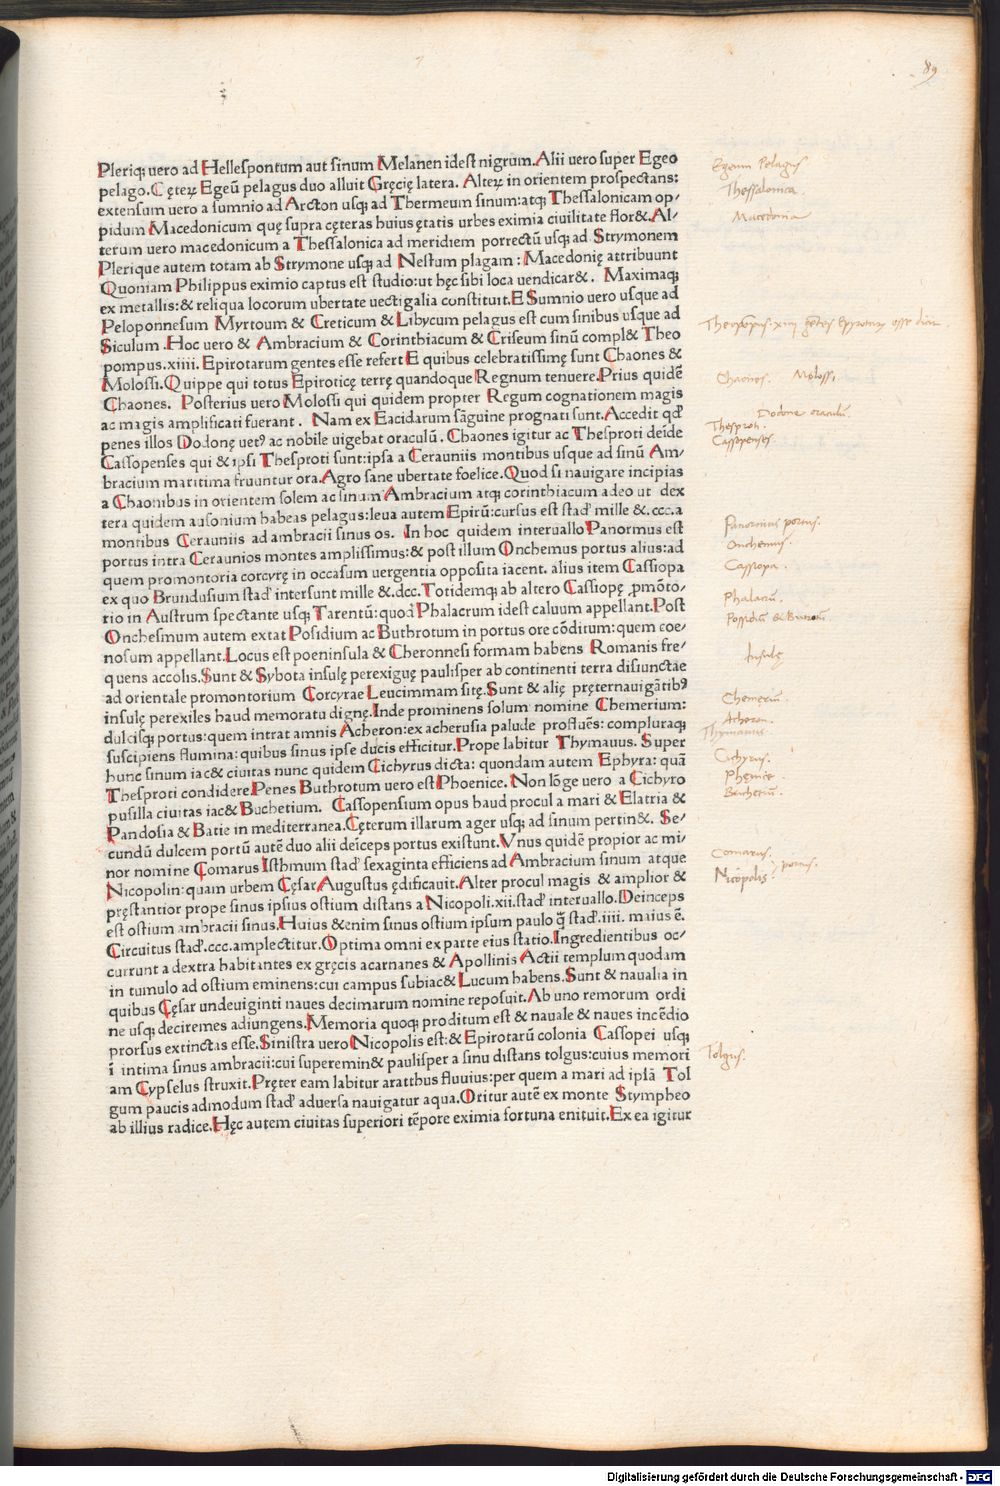 89
Pleriq; uero ad Hellespontum aut sinum Melanen idest nigrum. Alii uero super Egeo
pelago. Cęteꝝ Egeũ pelagus duo alluit Gręcię latera. Alteꝝ in orientem prospectans:
extensum uero a sumnio ad Arcton usq; ad Thermeum sinum: atq; Thessalonicam op/
pidum Macedonicum quę supra cęteras huius ętatis urbes eximia ciuilitate flor&. Al/
terum uero macedonicum a Thessalonica ad meridiem porrectũ usq; ad Strymonem
Plerique autem totam ab Strymone usq; ad Nestum plagam: Macedonię attribuunt
Quoniam Philippus eximio captus est studio: ut hęc sibi loca uendicar&. Maximaq;
ex metallis: & reliqua locorum ubertate uectigalia constituit. E Sumnio uero usque ad
Peloponnesum Myrtoum & Creticum & Libycum pelagus est cum sinibus usque ad
Siculum. Hoc uero & Ambracium & Corinthiacum & Criseum sinũ compl& Theo
pompus. xiiii. Epirotarum gentes esse refert E quibus celebratissimę sunt Chaones &
Molossi. Quippe qui totus Epiroticę terrę quandoque Regnum tenuere. Prius quidẽ
Chaones. Posterius uero Molossi qui quidem propter Regum cognationem magis
ac magis amplificati fuerant. Nam ex Eacidarum sãguine prognati sunt. Accedit qđ
penes illos Dodonę uetꝰ ac nobile uigebat oraculũ. Chaones igitur ac Thesproti deĩde
Cassopenses qui & ipsi Thesproti sunt: ipsa a Cerauniis montibus usque ad sinũ Am/
bracium maritima fruuntur ora. Agro sane ubertate foelice. Quod si nauigare incipias
a Chaonibus in orientem solem ac sinum Ambracium atq; corinthiacum adeo ut dex
tera quidem ausonium habeas pelagus: leua autem Epirũ: cursus est stađ mille &. ccc. a
montibus Cerauniis ad ambracii sinus os. In hoc quidem interuallo Panormus est
portus intra Ceraunios montes amplissimus: & post illum Onchemus portus alius: ad
quem promontoria corcyrę in occasum uergentia opposita iacent. alius item Cassiopa
ex quo Brundusium stađ intersunt mille &. dcc. Totidemq; ab altero Cassiopę ꝓmõto/
rio in Austrum spectante usq; Tarentũ: quod Phalacrum idest caluum appellant. Post
Onchesimum autem extat Posidium ac Buthrotum in portus ore cõditum: quem coe/
nosum appellant. Locus est poeninsula & Cheronnesi formam habens Romanis fre/
quens accolis. Sunt & Sybota insulę perexiguę paulisper ab continenti terra disiunctae
ad orientale promontorium Corcyrae Leucimmam sitę. Sunt & alię pręternauigãtibꝰ
insulę perexiles haud memoratu dignę. Inde prominens solum nomine Chemerium:
dulcisq; portus: quem intrat amnis Acheron: ex acherusia palude profluẽs: compluraq;
suscipiens flumina: quibus sinus ipse ducis efficitur. Prope labitur Thymauus. Super
hunc sinum iac& ciuitas nunc quidem Cichyrus dicta: quondam autem Ephyra: quã
Thesproti condidere. Penes Buthrotum uero est Phoenice. Non lõge uero a Cichyro
pusilla ciuitas iac& Buchetium. Cassopensium opus haud procul a mari & Elatria &
Pandosia & Batie in mediterranea. Cęterum illarum ager usq; ad sinum pertin&. Se/
cundũ dulcem portũ autẽ duo alii deĩceps portus existunt. Vnus quidẽ propior ac mi/
nor nomine Comarus Isthmum stađ sexaginta efficiens ad Ambracium sinum atque
Nicopolin: quam urbem Cęsar Augustus ędificauit. Alter procul magis & amplior &
pręstantior prope sinus ipsius ostium distans a Nicopoli. xii. stađ interuallo. Deinceps
est ostium ambracii sinus. Huius &enim sinus ostium ipsum paulo q̃ stađ. iiii. maius ẽ.
Circuitus stađ. ccc. amplectitur. Optima omni ex parte eius statio. Ingredientibus oc/
currunt a dextra habitantes ex gręcis acarnanes & Apollinis Actii templum quodam
in tumulo ad ostium eminens: cui campus subiac& Lucum habens. Sunt & naualia in
quibus Cęsar undeuiginti naues decimarum nomine reposuit. Ab uno remorum ordi
ne usq; deciremes adiungens. Memoria quoq; proditum est & nauale & naues incẽdio
prorsus extinctas esse. Sinistra uero Nicopolis est: & Epirotarũ colonia Cassopei usq;
ĩ intima sinus ambracii: cui superemin& paulisper a sinu distans tolgus: cuius memori
am Cypselus struxit. Pręter eam labitur aratthus fluuius: per quem a mari ad ipsã Tol
gum paucis admodum stađ aduersa nauigatur aqua. Oritur autẽ ex monte Stympheo
ab illius radice. Hęc autem ciuitas superiori tẽpore eximia fortuna enituit. Ex ea igitur
Egeum Pelagus
Thessalonica.
Macedonia
Chaones. Molossi
Dodone oraculũ.
Thesproti.
Cassopenses
Panormus portus.
Onchemus.
Cassiopa.
Phalacrũ.
Insulę
Chemeriũ.
Acheron.
Thymauus.
Cichyrus.
Phenice.
Buchetiũ.
Comarus.
Nicopolis. portus.
Tolgus.
Digitalisierung gefördert durch die Deutsche Forschungsgemeinschaft - DFG